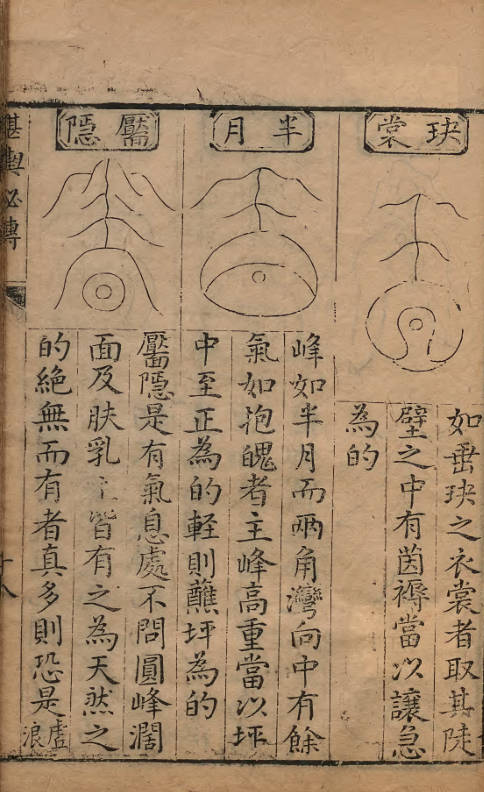 玦裳
如垂玦之衣裳者取其陡
壁之中有茵褥當以讓急
為的
半月
峰如半月而兩角灣向中有餘
氣如抱魄者主峰高重當以坪
中至正為的輕則蘸坪為的
靨隱
靨隱是有氣息處不問圓峰濶
面及肤乳上皆有之為天然之
的絕無而有者真多則恐是虛浪
堪輿必傳
十八